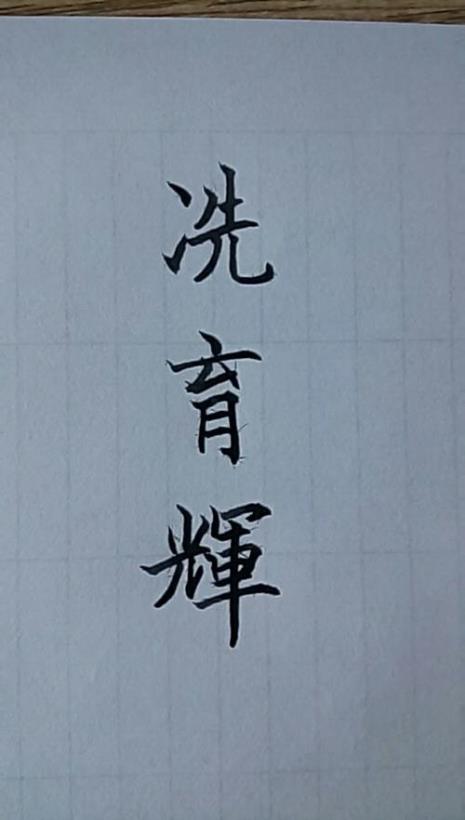 冼育輝